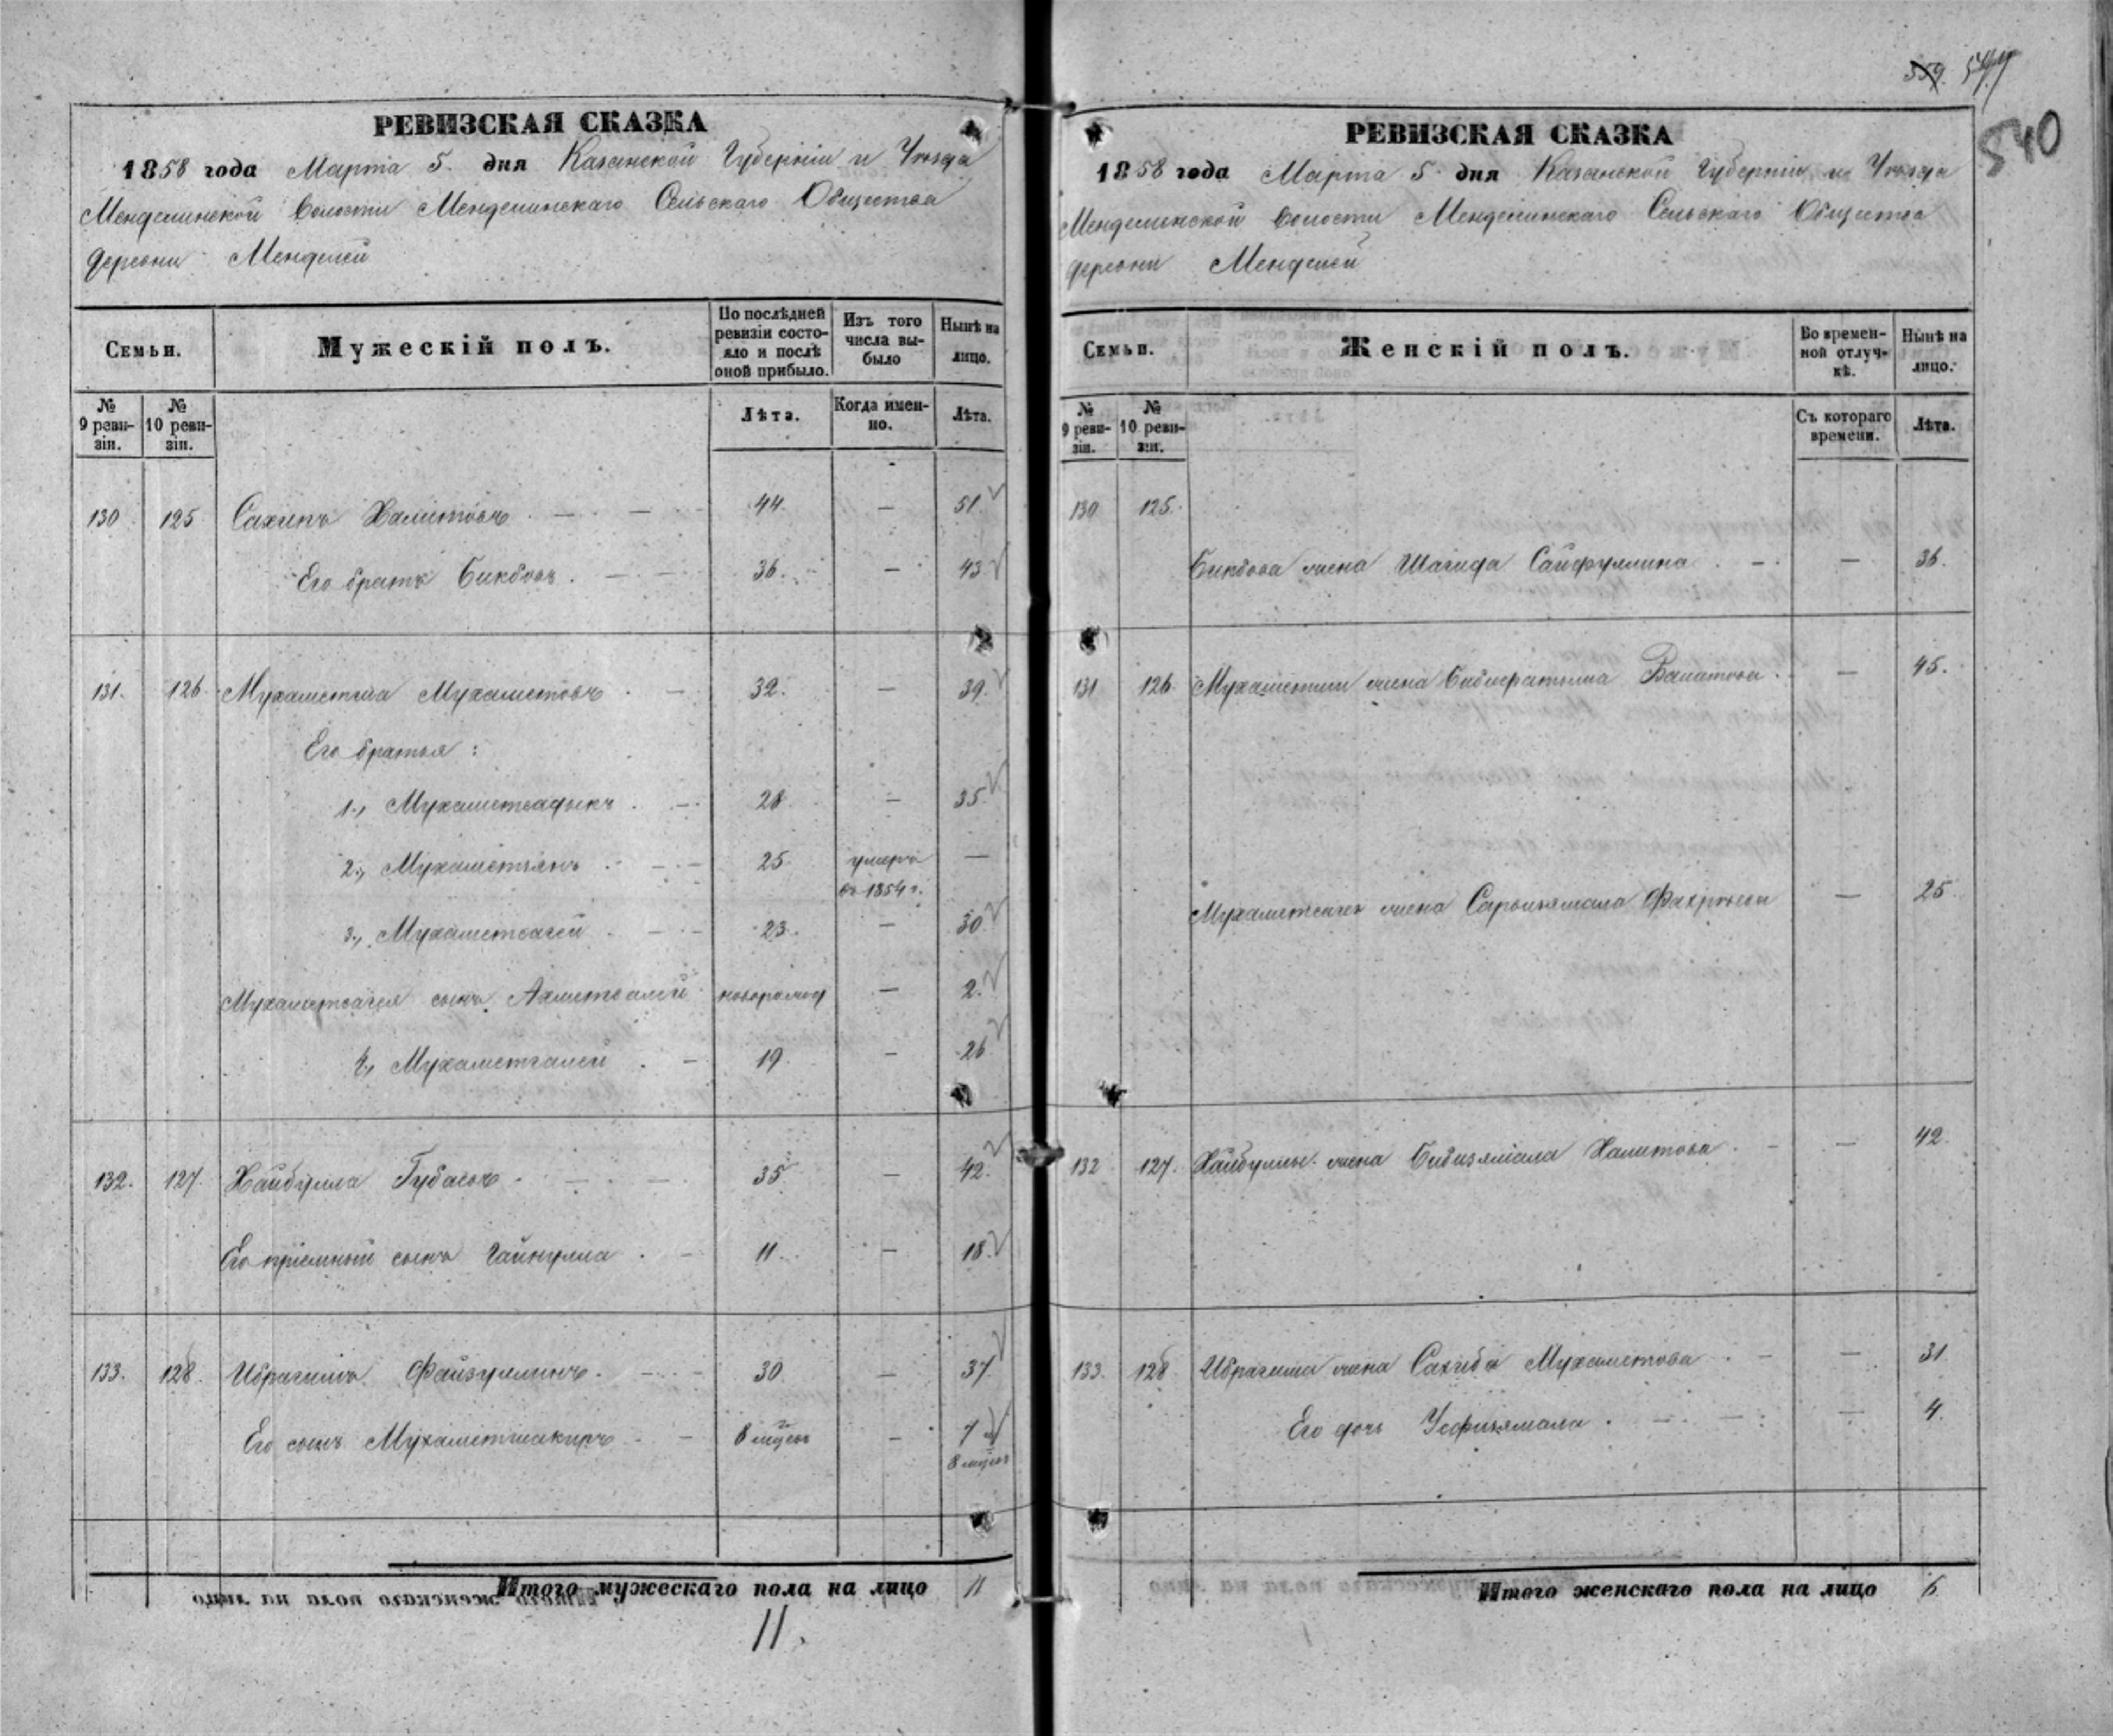 РЕВИЗСКАЯ СКАЗКА
1858 года Марта 5. дня Казанской Губерніи и Уѣзда
Менделинской Волости Менделинскаго Сельскаго Общества
деревни Менделей
Семьи.
Мужескій полъ.
По послѣдней ревизіи состояло и послѣ оной прибыло.
Изъ того числа выбыло
Нынѣ на лицо.
№ 9 ревизіи.
№ 10 ревизіи.
Лѣта.
Когда именно.
Лѣта.
130 125 Сахипъ Халитовъ 44 — 51
Его братъ Бикбовъ. 36. — 43
131. 126 Мухаметша Мухаметовъ 32. — 39.
Его братья:
1., Мухаметсадыкъ 28. — 35.
2., Мухаметзянъ 25 умеръ —
въ 1854 г.
3., Мухаметвалей 23. — 30
сынъ Ахметвалей — 2.
4., Мухаметгалей 19 — 26
132. 127. Хайбулла Губаевъ 35 — 42.
Его пріемный сынъ Гайнулла 11. — 18.
133. 128. Ибрагимъ Файзуллинъ. 30 — 37
Его сынъ Мухаметшакиръ 8 мцовъ — 7 и
8 мцовъ
Итого мужескаго пола на лицо 11
11.
559. 544
540
РЕВИЗСКАЯ СКАЗКА
1858 года Марта 5 дня Казанской Губерніи и Уѣзда
Менделинской Волости Менделинскаго Сельскаго Общества
деревни Менделей
Семьи.
Женскій полъ.
Во временной отлучкѣ.
Нынѣ на лицо.
№ 9 ревизіи.
№ 10 ревизіи.
Съ котораго времени.
Лѣта.
130 125.
Бикбова жена Шагида Сайфуллина — 36.
131 126. Мухаметши жена Валитова. — 45.
жена — 25
132 127. Хайбуллы жена Бибизямала Халитова — 42
133. 128 Ибрагима жена Сахиба Мухаметова — 31
Его дочь — 4.
Итого женскаго пола на лицо 6